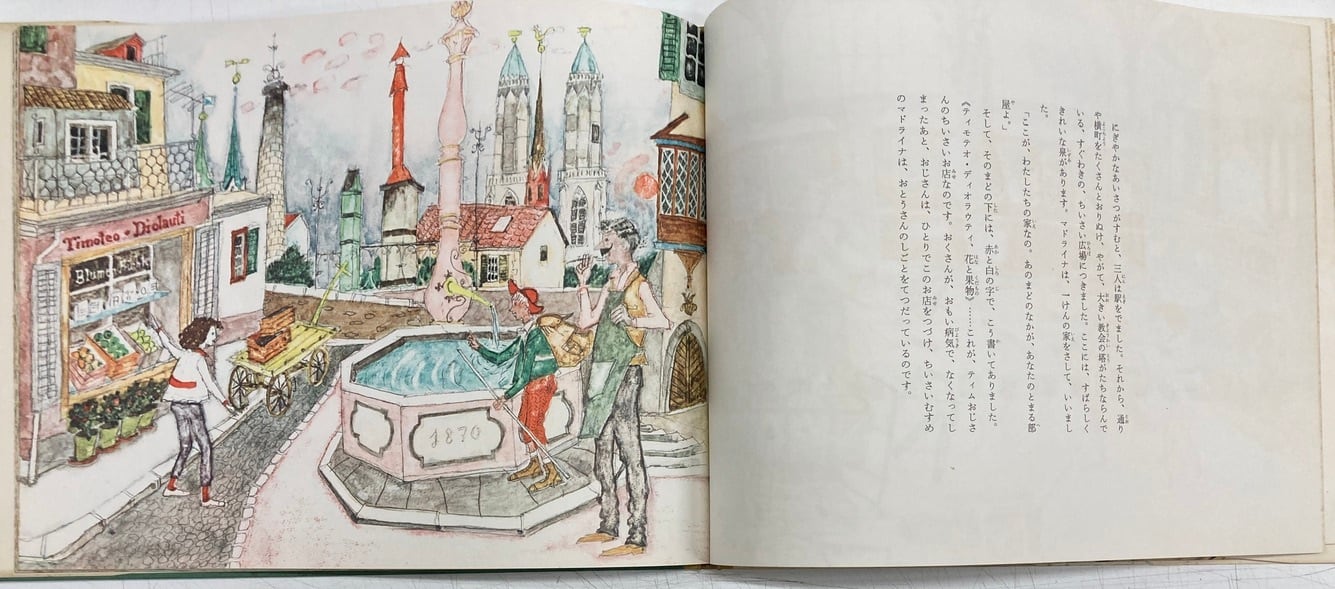 Timoteo • Diolauti
Blumen
1870
にぎやかなあいさつがすむと、三人は駅をでました。それから、通り
や横町をたくさんとおりぬけ、やがて、大きい教会の塔がたちならんで
いる、すぐわきの、ちいさい広場につきました。ここには、すばらしく
きれいな泉があります。マドライナは、一けんの家をさして、いいまし
た。
「ここが、わたしたちの家なの。あのまどのなかが、あなたのとまる部
屋よ。」
そして、そのまどの下には、赤と白の字で、こう書いてありました。
《ティモテオ・ディオラウティ・花と果物》……これが、ティムおじさ
んのちいさいお店なのです。おくさんが、おもい病気で、なくなってし
まったあと、おじさんは、ひとりでこのお店をつづけ、ちいさいむすめ
のマドライナは、おとうさんのしごとをてつだっているのです。